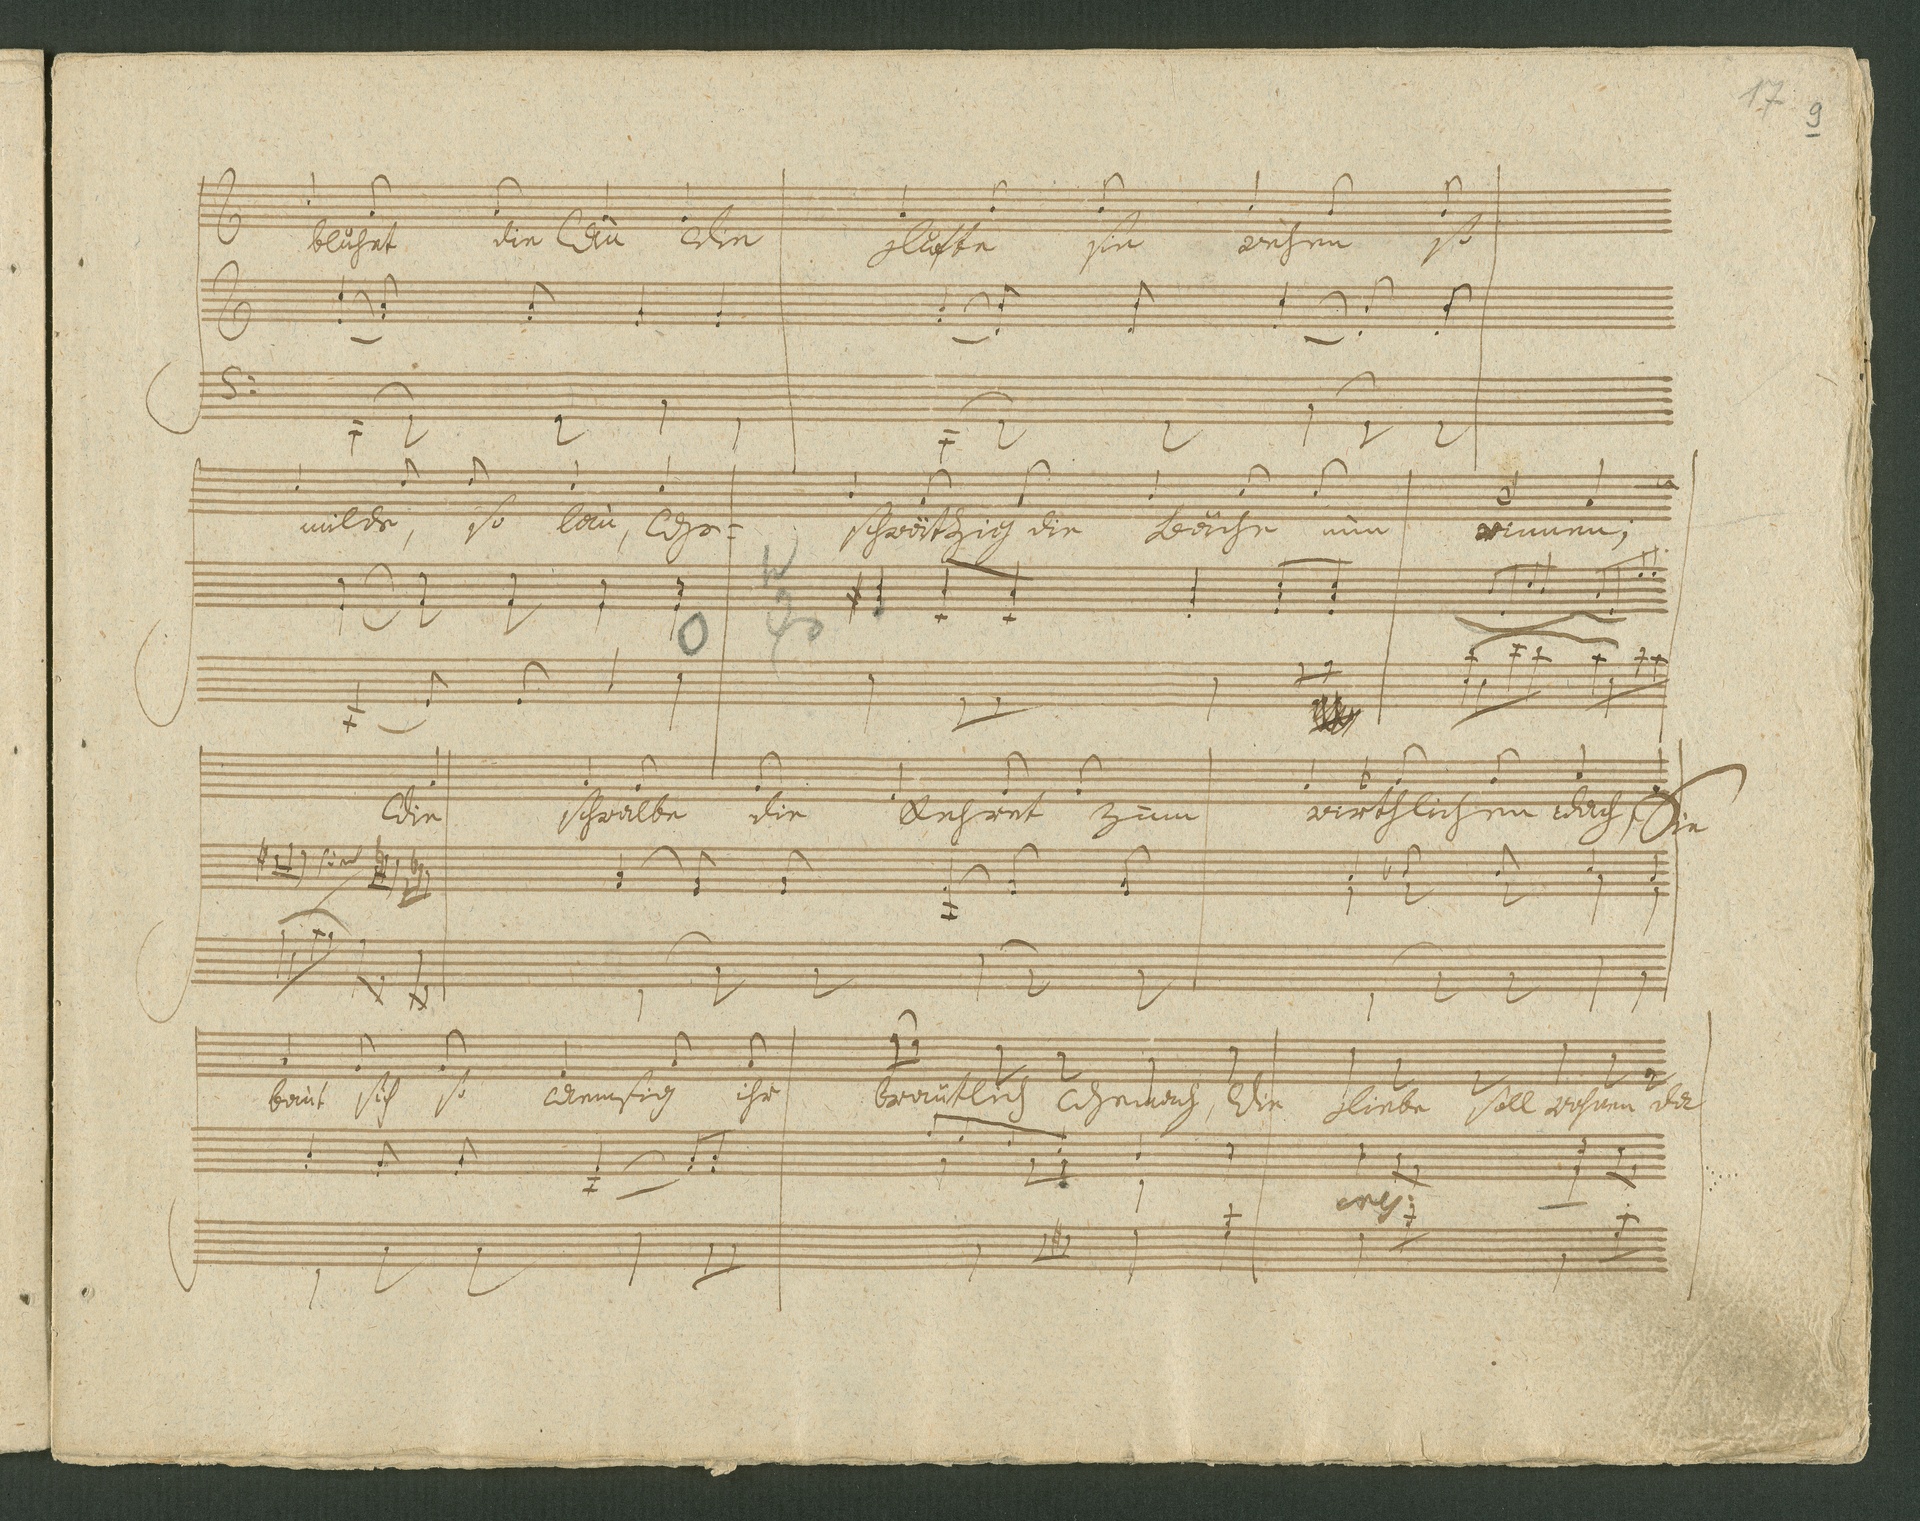 17 9
blühet die Au die Lüfte sie wehen so
milde, so lau, Ge= schwätzig die Bäche nun rinnen;
Die schwalbe die kehret zum wirthlichen Dach, Sie
baut sich so aemsig ihr bräutlich Gemach, Die Liebe soll wohnen da